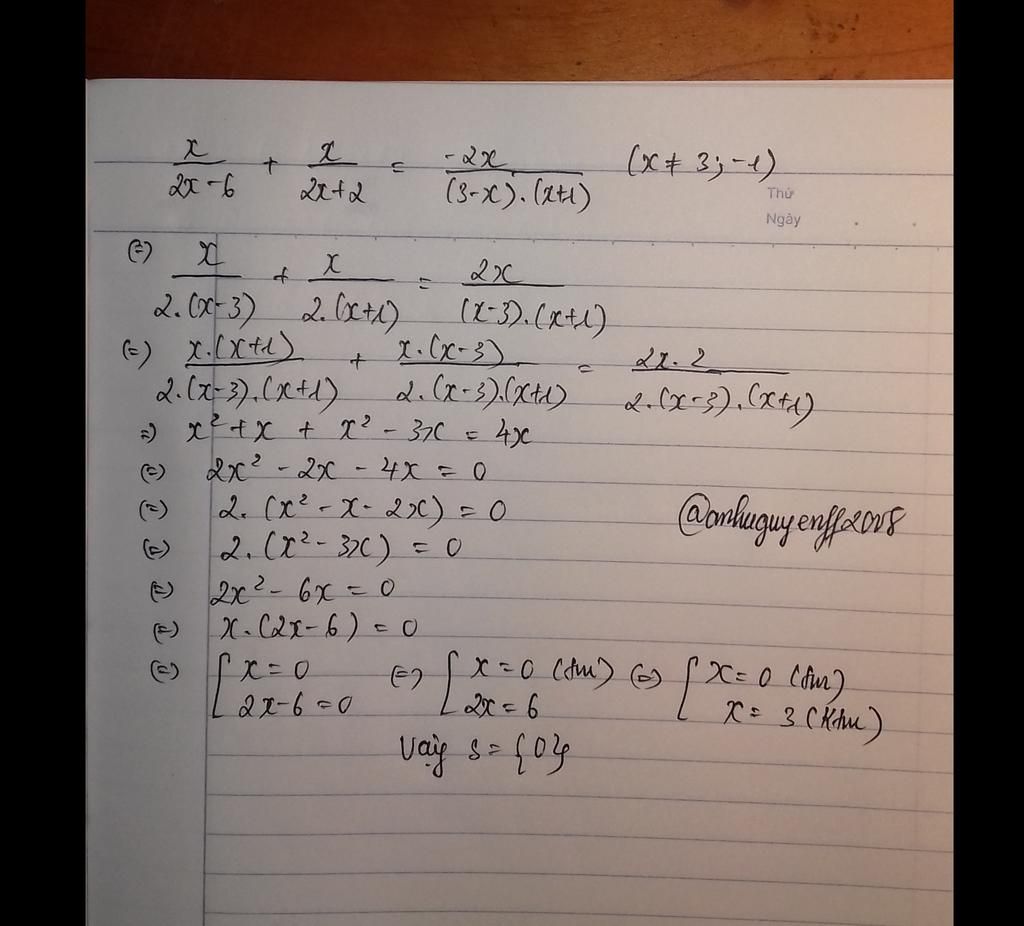 x/(2x-6) + x/(2x+2) = -2x/((3-x).(x+1)) (x ≠ 3; -1)
Thứ
Ngày
(=) x/(2.(x-3)) + x/(2.(x+1)) = 2x/((x-3).(x+1))
(=) x.(x+1)/(2.(x-3).(x+1)) + x.(x-3)/(2.(x-3).(x+1)) = 2x.2/(2.(x-3).(x+1))
=) x² + x + x² - 3x = 4x
(=) 2x² - 2x - 4x = 0
(=) 2. (x² - x - 2x) = 0
@anhuguyenff2008
(=) 2. (x² - 3x) = 0
(=) 2x² - 6x = 0
(=) x.(2x-6) = 0
(=) [ x = 0 (=) [ x = 0 (tm) (=) [ x = 0 (tm)
2x-6 = 0 2x = 6 x = 3 (Ktm)
Vậy S = {0}